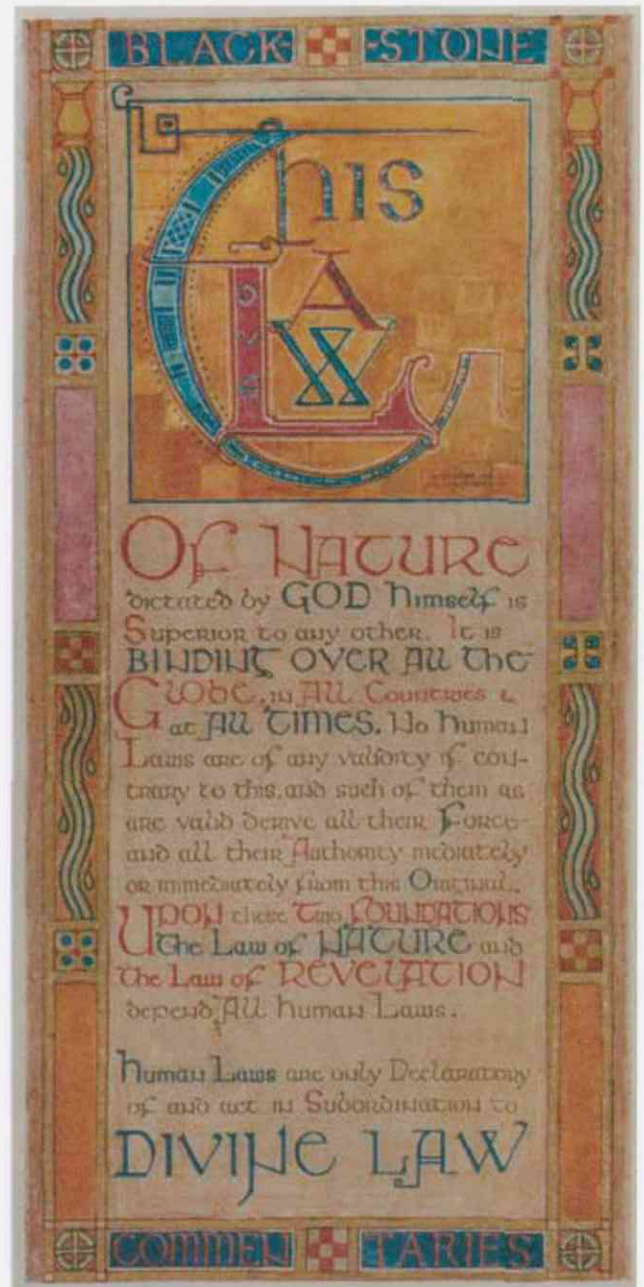 BLACK- -STONE
This
LAW
Love
OF NATURE
dictated by GOD Himself is
Superior to any other. It is
BINDING OVER All the
GLOBE, in All Countries &
at All TIMES. No Human
Laws are of any validity if con-
trary to this, and such of them as
are valid derive all their Force
and all their Authority mediately
or immediately from this Original.
UPON these Two FOUNDATIONS
the Law of NATURE and
the Law of REVELATION
depend All Human Laws.
Human Laws are only Declaratory
of and act in Subordination to
DIVINE LAW
COMMEN TARIES